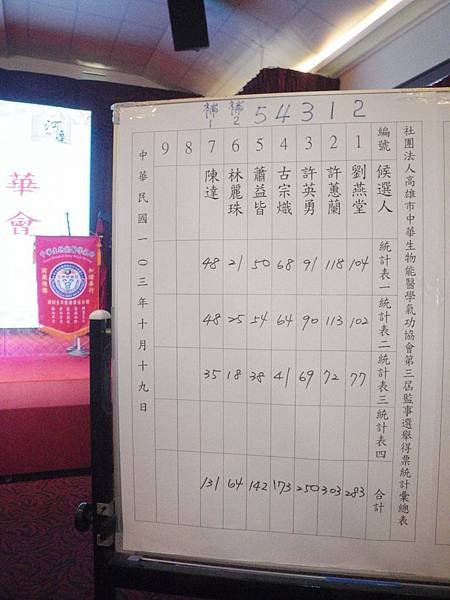 社團法人高雄市中華生物能醫學氣功協會第三屆監事選舉得票統計彙總表
編號 候選人 統計表一 統計表二 統計表三 統計表四 合計
2 1 劉燕堂 104 102 77 283
1 2 許蕙蘭 118 113 72 303
3 3 許英勇 91 90 69 250
4 4 古宗熾 68 64 41 173
5 5 蕭益皆 50 54 38 142
補2 6 林麗珠 21 25 18 64
補1 7 陳達 48 48 35 131
8
9
中華民國一0三年十月十九日
華會